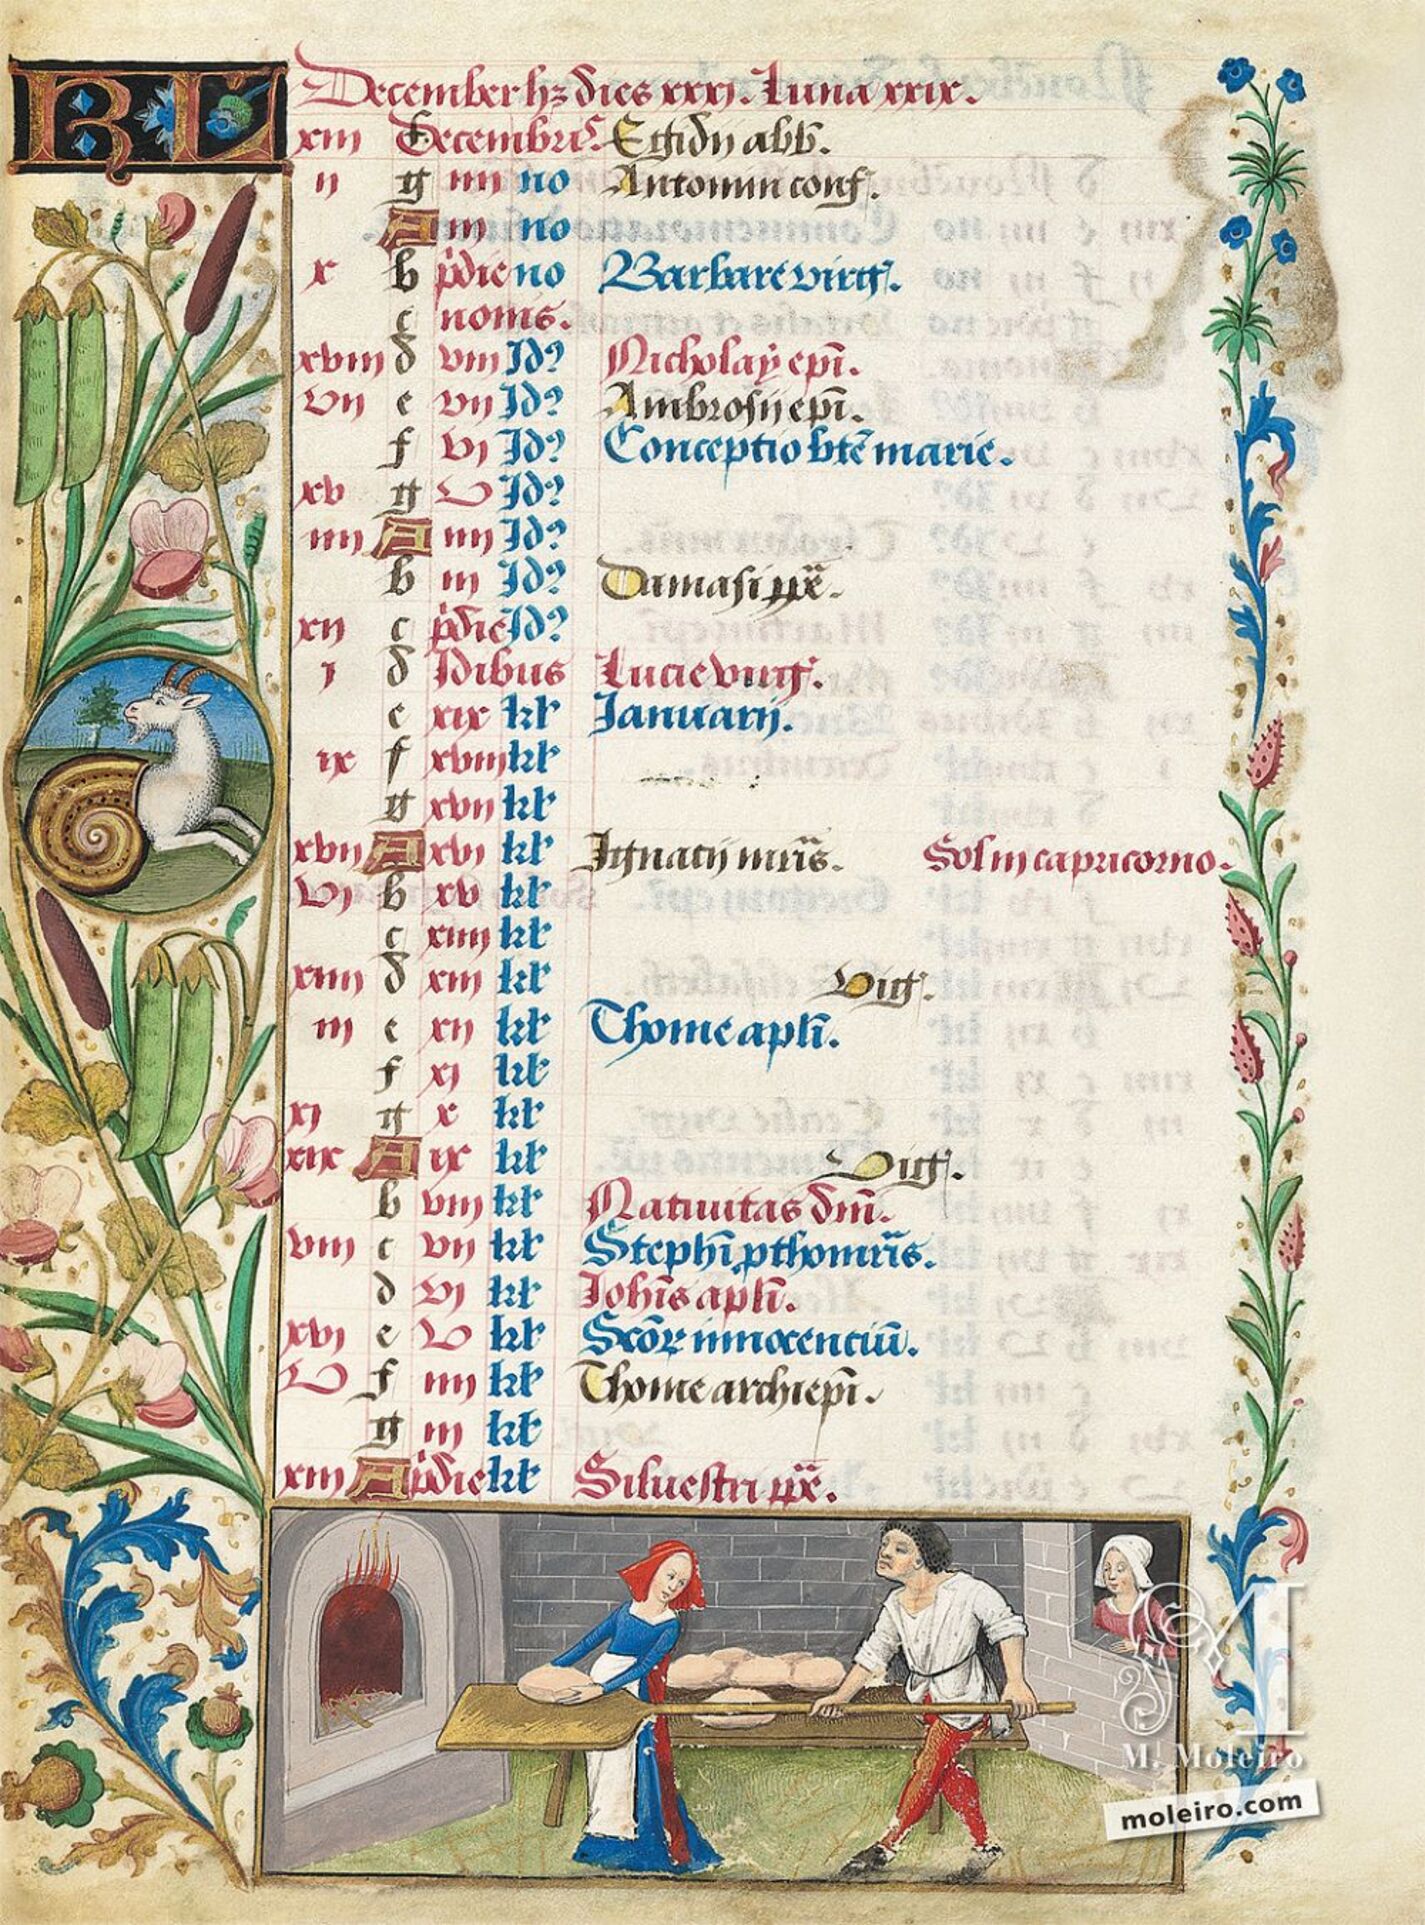 KL December hꝫ dies xxxj. Luna xxix.
xiij f Decembris. Egidij abb̄.
ij g iiij no Antonini conf.
A iij no
x b pͥdie no Barbare virg.
c nonis.
xviij d viij Id9 Nicholaÿ ep̄i.
vij e vij Id9 Ambrosij ep̄i.
f vj Id9 Conceptio bt̄e marie.
xv g v Id9
iiij A iiij Id9
b iij Id9 Damasi pp̄e.
xij c pͥdie Id9
j d Idibus Lucie virg.
e xix kl Ianuarij.
ix f xviij kl
g xvij kl
xvij A xvj kl Ignacij mr̄is. Sol in capricorno.
vj b xv kl
c xiiij kl
xiiij d xiij kl Vig.
iij e xij kl Thome apl̄i.
f xj kl
xj g x kl
xix A ix kl Vig.
b viij kl Natiuitas dn̄i.
viij c vij kl Steph̄i ꝓthomr̄is.
d vj kl Ioh̄is apl̄i.
xvj e v kl Sc̄oꝝ innocenciū.
v f iiij kl Thome archiep̄i.
g iij kl
xiij A pͥdie kl Siluestri pp̄e.
M. Moleiro
moleiro.com